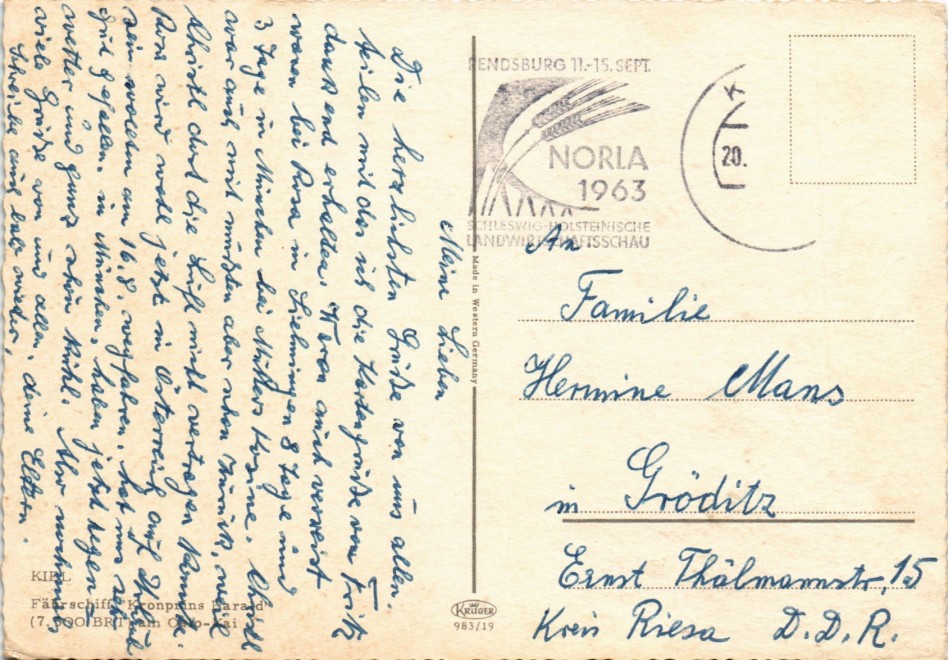 Meine Lieben
Die herzlichsten Grüße von uns allen.
teilen mit das ich die Kartengrüße von Fritz
dankend erhalten. Waren auch verreist
waren bei Rosa in Sielmingen 8 Tage und
3 Tage in München bei Christl
war auch mit mußten aber schon zurück, weil
Christl durch die Luft nicht vertragen kannte.
Rosa wird wohl jetzt in Österreich auf Urlaub
sein wollten am 16.8. wegfahren, hat uns sehr
gut gefallen in München, haben jetzt Regen
wetter und ganz schön kühl. Also nochmals
viele Grüße von uns allen, deine Eltern.
Schreibe auch bald wieder,
KIEL
Fährschiff "Kronprins Harald"
(7.000 BRT) am Oslo-Kai
Made in Western Germany
KRÜGER
983/19
RENDSBURG 11.-15. SEPT.
NORLA
1963
SCHLESWIG-HOLSTEINISCHE
LANDWIRTSCHAFTSSCHAU
20.
An
Familie
Hermine Mans
in Gröditz
Ernst Thälmannstr. 15
Kreis Riesa D.D.R.